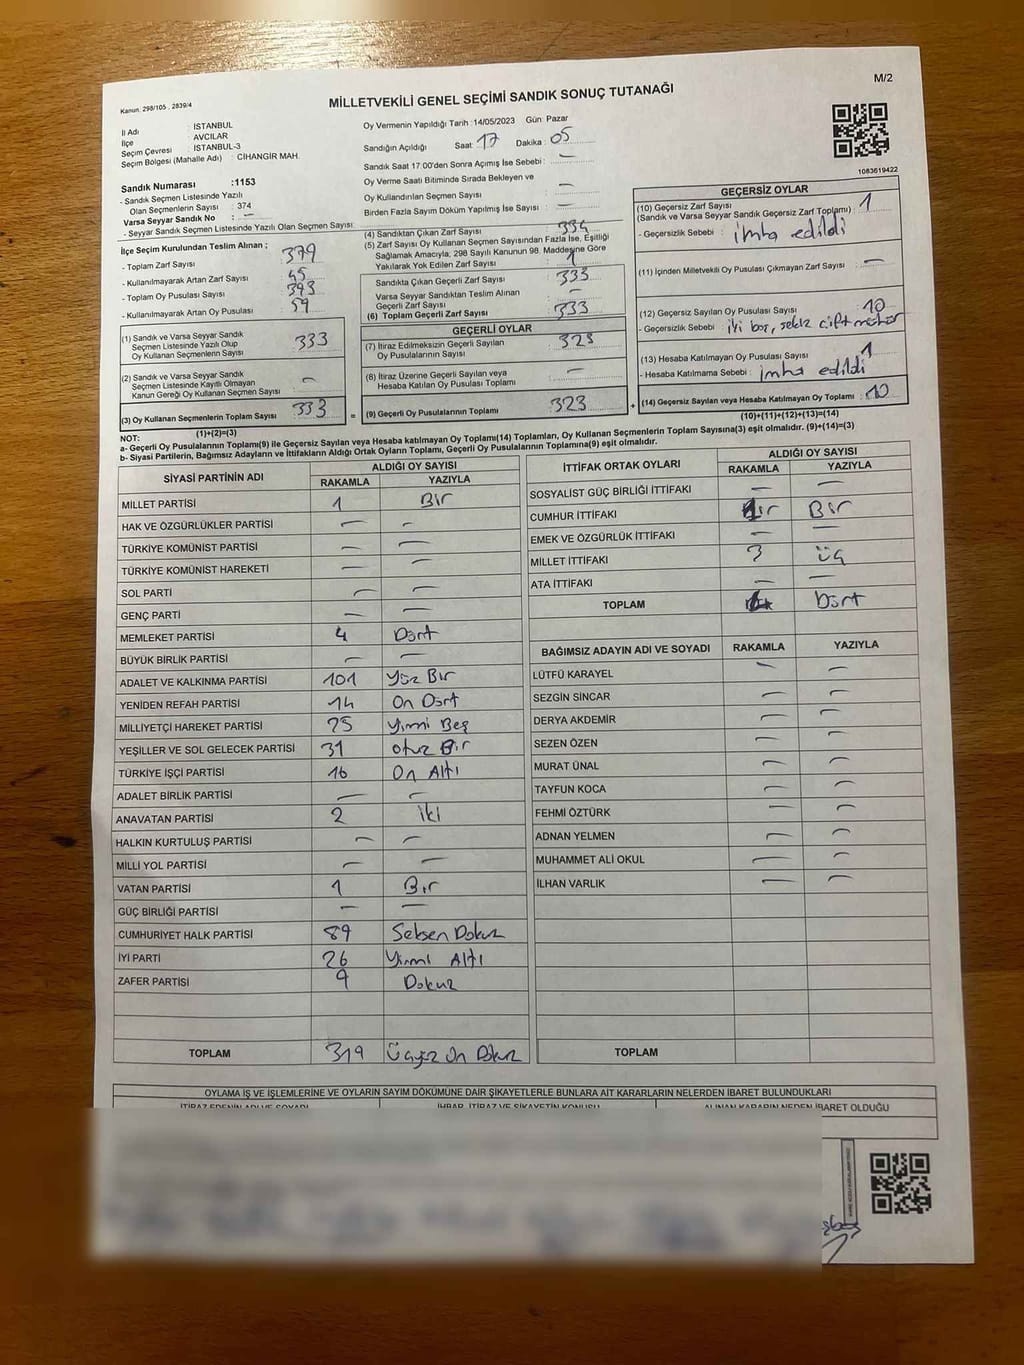 Kanun: 298/105 , 2839/4
MİLLETVEKİLİ GENEL SEÇİMİ SANDIK SONUÇ TUTANAĞI
M/2
İl Adı : İSTANBUL
İlçe : AVCILAR
Seçim Çevresi : İSTANBUL-3
Seçim Bölgesi (Mahalle Adı) : CİHANGİR MAH.
Oy Vermenin Yapıldığı Tarih :14/05/2023 Gün: Pazar
Sandığın Açıldığı Saat: 17 Dakika: 05
Sandık Saat 17:00'den Sonra Açımış İse Sebebi : —
Oy Verme Saati Bitiminde Sırada Bekleyen ve
Oy Kullandırılan Seçmen Sayısı : —
Birden Fazla Sayım Döküm Yapılmış İse Sayısı : —
1083619422
Sandık Numarası :1153
- Sandık Seçmen Listesinde Yazılı
Olan Seçmenlerin Sayısı : 374
Varsa Seyyar Sandık No : —
- Seyyar Sandık Seçmen Listesinde Yazılı Olan Seçmen Sayısı:
İlçe Seçim Kurulundan Teslim Alınan ;
- Toplam Zarf Sayısı : 379
- Kullanılmayarak Artan Zarf Sayısı : 45
- Toplam Oy Pusulası Sayısı : 393
- Kullanılmayarak Artan Oy Pusulası : 59
(1) Sandık ve Varsa Seyyar Sandık
Seçmen Listesinde Yazılı Olup
Oy Kullanan Seçmenlerin Sayısı : 333
(2) Sandık ve Varsa Seyyar Sandık
Seçmen Listesinde Kayıtlı Olmayan
Kanun Gereği Oy Kullanan Seçmen Sayısı : —
(3) Oy Kullanan Seçmenlerin Toplam Sayısı : 333 =
(1)+(2)=(3)
(4) Sandıktan Çıkan Zarf Sayısı : 334
(5) Zarf Sayısı Oy Kullanan Seçmen Sayısından Fazla İse, Eşitliği
Sağlamak Amacıyla; 298 Sayılı Kanunun 98. Maddesine Göre
Yakılarak Yok Edilen Zarf Sayısı : 1
Sandıkta Çıkan Geçerli Zarf Sayısı : 333
Varsa Seyyar Sandıktan Teslim Alınan
Geçerli Zarf Sayısı : —
(6) Toplam Geçerli Zarf Sayısı : 333
GEÇERLİ OYLAR
(7) İtiraz Edilmeksizin Geçerli Sayılan
Oy Pusulalarının Sayısı : 323
(8) İtiraz Üzerine Geçerli Sayılan veya
Hesaba Katılan Oy Pusulası Toplamı : —
(9) Geçerli Oy Pusulalarının Toplamı : 323 +
GEÇERSİZ OYLAR
(10) Geçersiz Zarf Sayısı
(Sandık ve Varsa Seyyar Sandık Geçersiz Zarf Toplamı) : 1
- Geçersizlik Sebebi : imha edildi
(11) İçinden Milletvekili Oy Pusulası Çıkmayan Zarf Sayısı : —
(12) Geçersiz Sayılan Oy Pusulası Sayısı : 10
- Geçersizlik Sebebi : iki boş, sekiz çift mühür
(13) Hesaba Katılmayan Oy Pusulası Sayısı : 1
- Hesaba Katılmama Sebebi : imha edildi
(14) Geçersiz Sayılan veya Hesaba Katılmayan Oy Toplamı : 10
(10)+(11)+(12)+(13)=(14)
NOT:
a- Geçerli Oy Pusulalarının Toplamı(9) ile Geçersiz Sayılan veya Hesaba katılmayan Oy Toplamı(14) Toplamları, Oy Kullanan Seçmenlerin Toplam Sayısına(3) eşit olmalıdır. (9)+(14)=(3)
b- Siyasi Partilerin, Bağımsız Adayların ve İttifakların Aldığı Ortak Oyların Toplamı, Geçerli Oy Pusulalarının Toplamına(9) eşit olmalıdır.
SİYASİ PARTİNİN ADI ALDIĞI OY SAYISI
RAKAMLA YAZIYLA
MİLLET PARTİSİ 1 Bir
HAK VE ÖZGÜRLÜKLER PARTİSİ — —
TÜRKİYE KOMÜNİST PARTİSİ — —
TÜRKİYE KOMÜNİST HAREKETİ — —
SOL PARTİ — —
GENÇ PARTİ — —
MEMLEKET PARTİSİ 4 Dört
BÜYÜK BİRLİK PARTİSİ — —
ADALET VE KALKINMA PARTİSİ 101 Yüz Bir
YENİDEN REFAH PARTİSİ 14 On Dört
MİLLİYETÇİ HAREKET PARTİSİ 25 Yirmi Beş
YEŞİLLER VE SOL GELECEK PARTİSİ 31 otuz Bir
TÜRKİYE İŞÇİ PARTİSİ 16 On Altı
ADALET BİRLİK PARTİSİ — —
ANAVATAN PARTİSİ 2 iki
HALKIN KURTULUŞ PARTİSİ — —
MİLLİ YOL PARTİSİ — —
VATAN PARTİSİ 1 Bir
GÜÇ BİRLİĞİ PARTİSİ — —
CUMHURİYET HALK PARTİSİ 89 Seksen Dokuz
İYİ PARTİ 26 Yirmi Altı
ZAFER PARTİSİ 9 Dokuz
TOPLAM 319 Üçyüz On Dokuz
İTTİFAK ORTAK OYLARI ALDIĞI OY SAYISI
RAKAMLA YAZIYLA
SOSYALİST GÜÇ BİRLİĞİ İTTİFAKI — —
CUMHUR İTTİFAKI Bir
EMEK VE ÖZGÜRLÜK İTTİFAKI — —
MİLLET İTTİFAKI 3 üç
ATA İTTİFAKI — —
TOPLAM Dört
BAĞIMSIZ ADAYIN ADI VE SOYADI RAKAMLA YAZIYLA
LÜTFÜ KARAYEL — —
SEZGİN SİNCAR — —
DERYA AKDEMİR — —
SEZEN ÖZEN — —
MURAT ÜNAL — —
TAYFUN KOCA — —
FEHMİ ÖZTÜRK — —
ADNAN YELMEN — —
MUHAMMET ALİ OKUL — —
İLHAN VARLIK — —
TOPLAM
OYLAMA İŞ VE İŞLEMLERİNE VE OYLARIN SAYIM DÖKÜMÜNE DAİR ŞİKAYETLERLE BUNLARA AİT KARARLARIN NELERDEN İBARET BULUNDUKLARI
İTİRAZ EDENİN ADI VE SOYADI İHBAR, İTİRAZ VE ŞİKAYETİN KONUSU ALINAN KARARIN NEDEN İBARET OLDUĞU